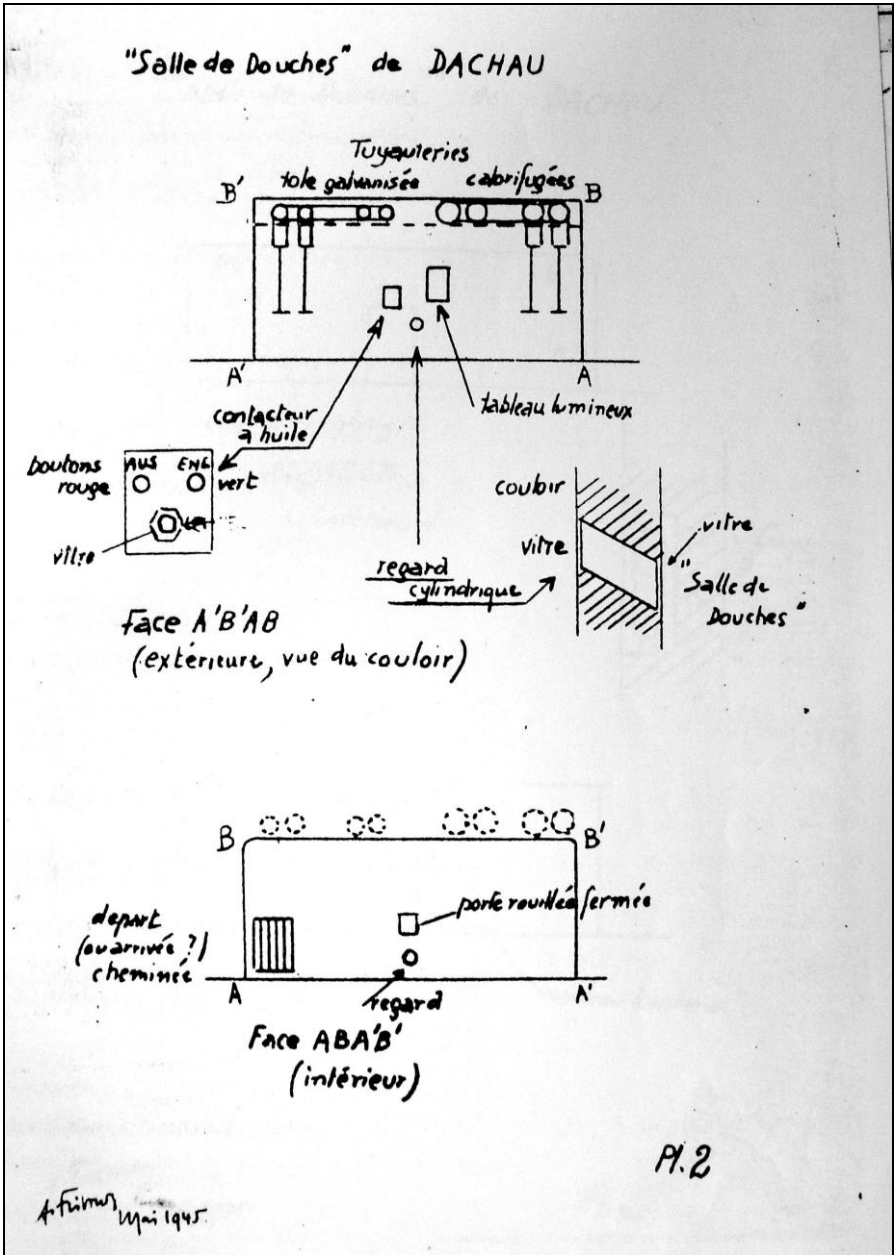 "Salle de Douches" de DACHAU
Tuyauteries
tole galvanisée calorifugées
B' B
A' A
contacteur
a huile
tableau lumineux
boutons
rouge
AUS ENG
vert
vitre
couloir
vitre
vitre
"Salle de
Douches"
regard
cylindrique
Face A'B'AB
(extérieure, vue du couloir)
B B'
porte rouillée fermée
depart
(ou arrivée ?)
cheminée
A A'
regard
Face ABA'B'
(intérieur)
Pl.2
Mai 1945